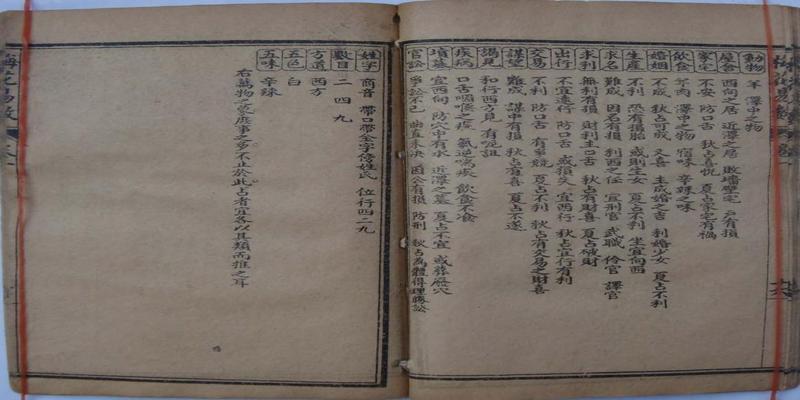 動物 羊 澤中之物
屋舍 西向之居 近澤之居 敗墻壁宅 戶有損
家宅 不安 防口舌 秋占喜悅 夏占家宅有禍
飲食 羊肉 澤中之物 宿味 辛辣之味
婚姻 不成 秋占可成 又喜 主成婚之吉 利婚少女 夏占不利
生產 不利 恐有損胎 或則生女 夏占不利 坐宜向西
求名 難成 因名有損 利西之任 宜刑官 武職 伶官 譯官
求利 無利有損 財利主口舌 秋占有財喜 夏占破財
出行 不宜遠行 防口舌 或損失 宜西行 秋占宜行有利
交易 不利 防口舌 有爭競 夏占不利 秋占有交易之財喜
謀望 難成 謀中有損 秋占有喜 夏占不遂
謁見 利行西方見 有咒詛
疾病 口舌咽喉之疾 氣逆喘疾 飲食不飧
墳墓 宜西向 防穴中有水 近澤之墓 夏占不宜 或葬廢穴
官訟 爭訟不已 曲直未決 因公有損 防刑 秋占為體得理勝訟
姓字 商音 帶口帶金字傍姓氏 位行四二九
數目 二 四 九
方道 西方
五色 白
五味 辛辣
右萬物之象庶事之多不止於此占者宜各以其類而推之耳
梅花易數